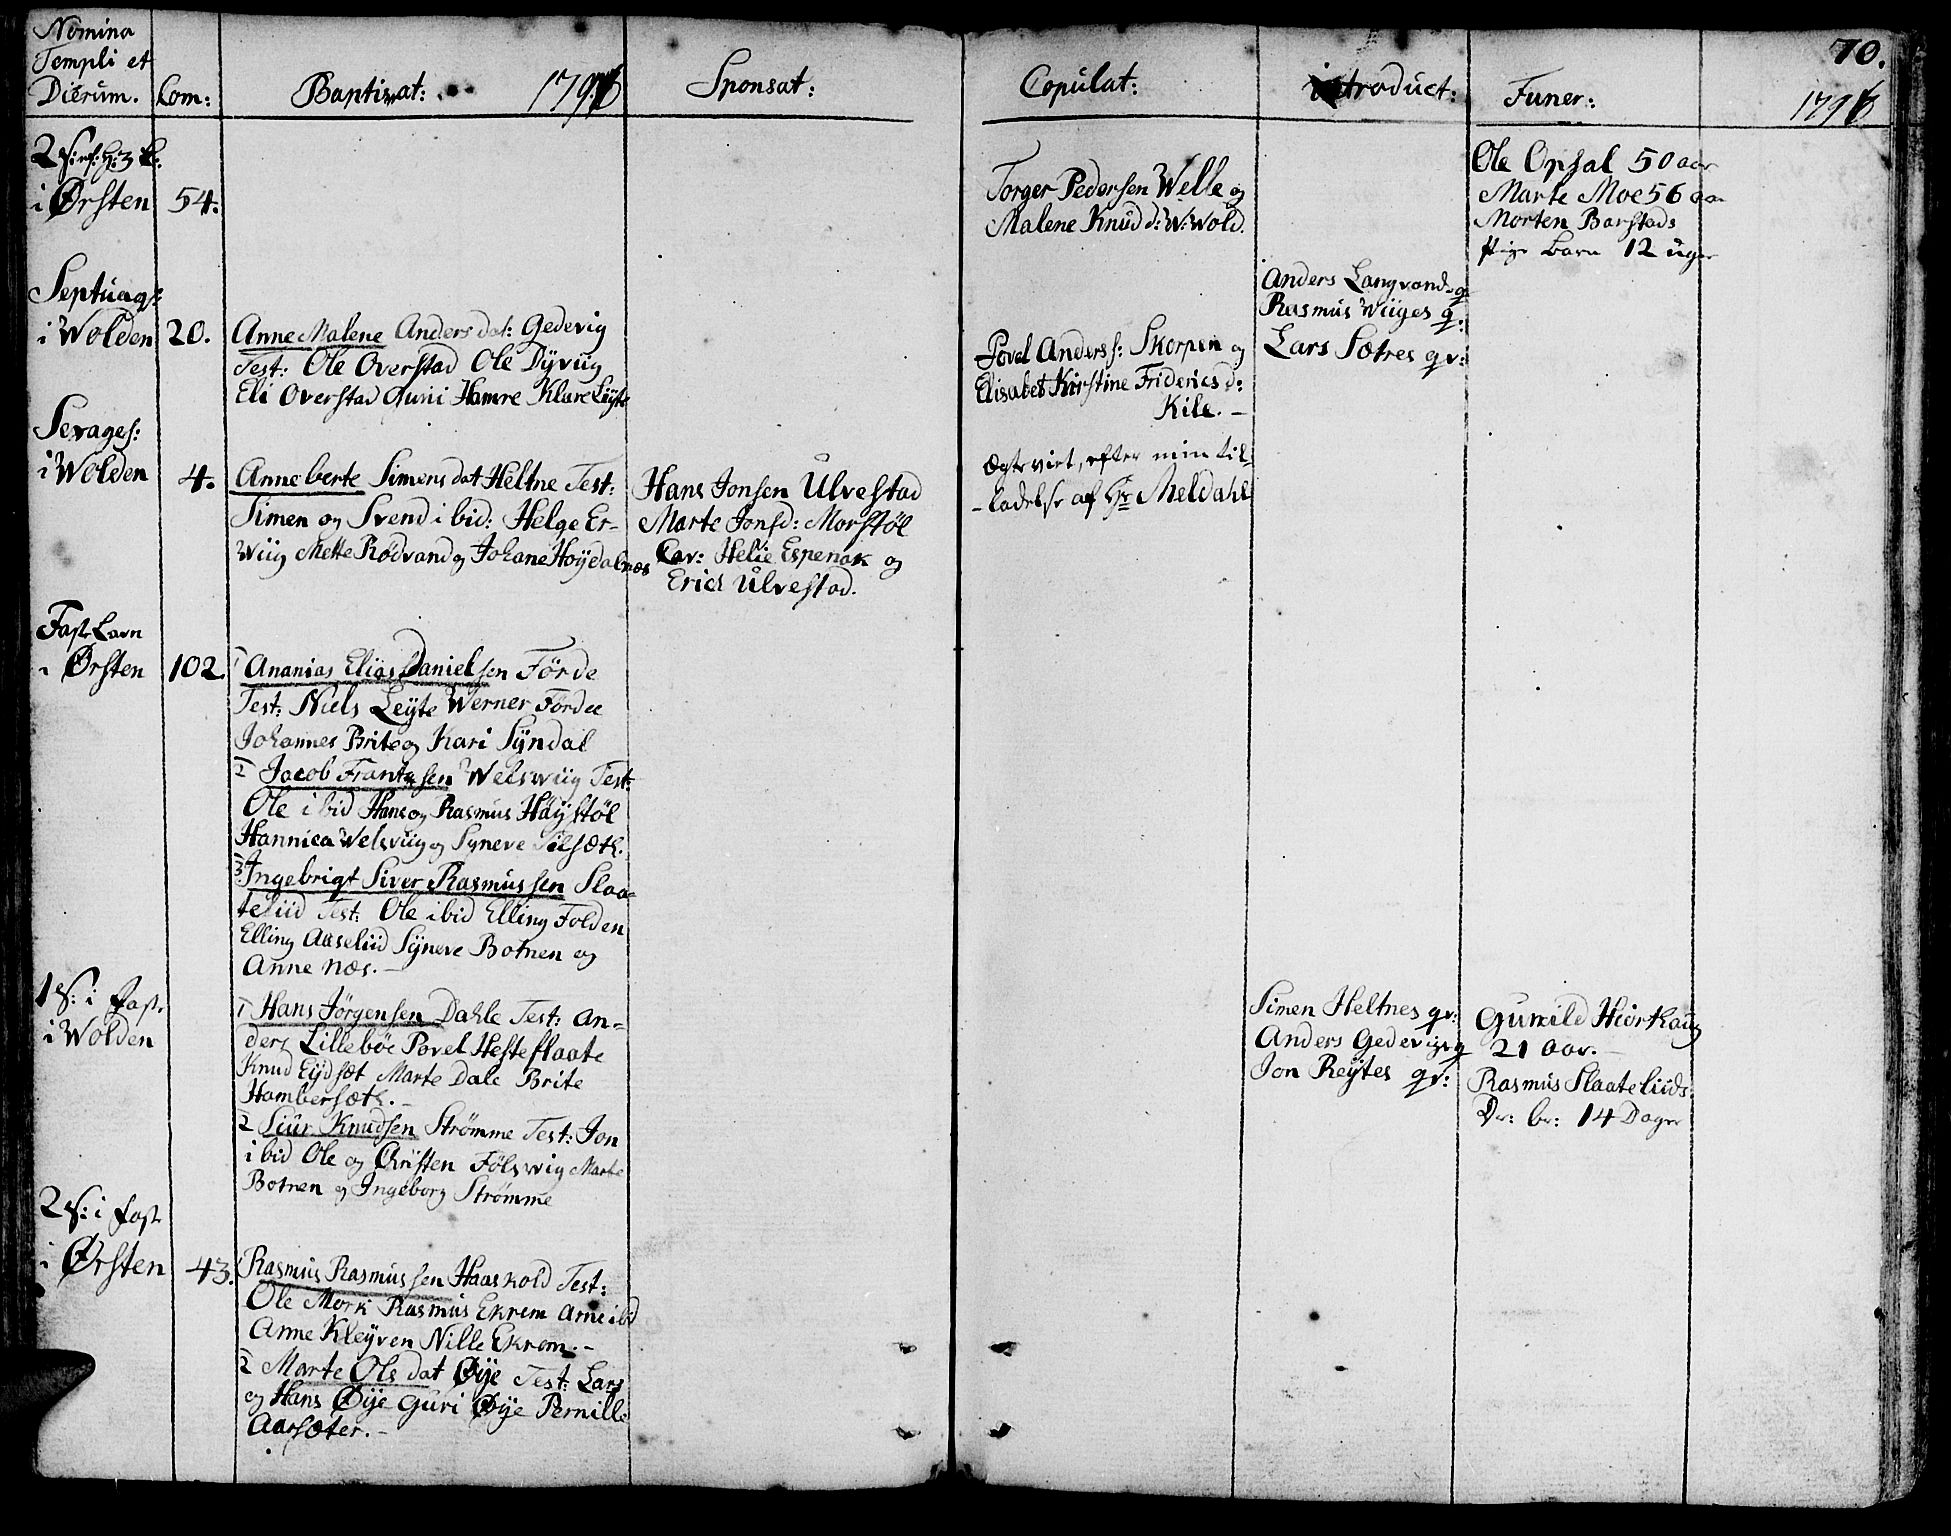 Nomina
Templi et
Dierum.
Com:
Baptisat:
1796
Sponsat:
Copulat:
introduct:
Funer:
70.
1796
i Ørsten 54.
Torger Pedersen Welle og
Malene Knud d: W: Wold.
Ole Opsal 50 aar
Marte Moe 56 aar
Morten Barstads
Pige barn 12 uger
Septuag:
i Wolden 20.
Anne Malene Anders dat: Gedevig
Test: Ole Overstad Ole Dyvug
Eli Overstad Guri Hamre Klare Leyte
Povel Anders: Skorpen og
Elisabet Kirstine Friderics d:
Kile. –
Ægteviet, efter min til-
-ladelse af Hr Meldahl
Anders Langvands q
Rasmus Wiiges q:
Lars Sætres qv:
Sexages:
i Wolden 4.
Anneberte Simens dat Heltne Test:
Simen og Svend ibid: Helge Er-
wiig Mette Rødvand og Johane Høydalnes
Hans Jonsen Ulvestad
Marte Jonsd: Morstøl
Cav: Helie Espenak og
Erich Ulvestad.
Faste Lavn
i Ørsten 102.
1 Ananias Elias Danielsen Förde
Test: Niels Leyte Werner Förde
Johannes Brite og Kari Syndal
2 Jacob Frantzsen Welswiig Test:
Ole ibid Hans og Rasmus Høystøl
Hannica Welsviig og Syneve Tilsæth.
3 Ingebrigt Siver Rasmussen Slaa-
teliid Test: Ole ibid Elling Folden
Elling Aaseliid Syneve Botnen og
Anne Næs. –
1 S: i Fast.
i Wolden
1 Hans Jörgensen Dahle Test: An-
ders Lillebøe Povel Hesteflaate
Knud Eydsæt Marte Dale Brite
Hambersæth. –
2 Siur Knudsen Strømme Test: Jon
ibid Ole og Christen Fölswig Marte
Botnen og Ingeborg Strømme
Simen Heltnes qv:
Anders Gedevigs q
Jon Reytes qv:
Gunild Hiorthaug
21 Aar. –
Rasmus Slaateliids
Dr: br: 14 Dager
2 S: i Fast
i Ørsten 43.
1 Rasmus Rasmussen Haaskold Test:
Ole Mork Rasmus Ekrem Arne ibid
Anne Kleyven Nille Ekrem. –
2 Marte Ols dat Øye Test: Lars
og Hans Øye Guri Øye Pernille
Aarsæter. –